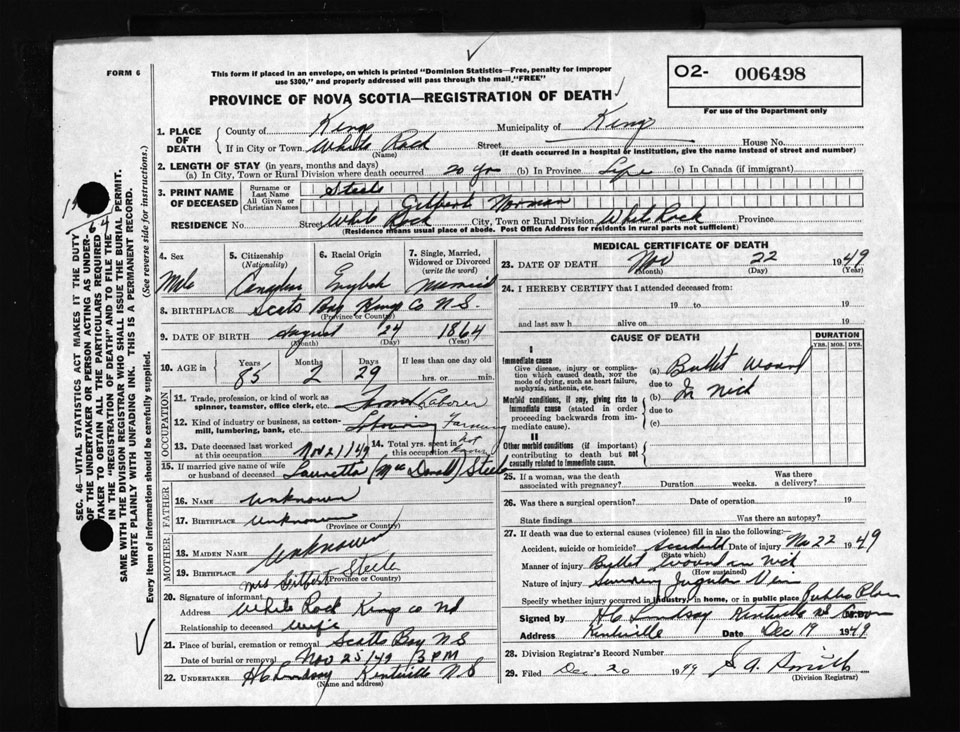 FORM 6
This form if placed in an envelope, on which is printed "Dominion Statistics—Free, penalty for improper
use $300," and properly addressed will pass through the mail, "FREE"
O2- 006498
For use of the Department only
PROVINCE OF NOVA SCOTIA—REGISTRATION OF DEATH
1. PLACE OF DEATH
County of Kings Municipality of Kings
If in City or Town White Rock Street House No.
(Name) (If death occurred in a hospital or institution, give the name instead of street and number)
2. LENGTH OF STAY (in years, months and days)
(a) In City, Town or Rural Division where death occurred 20 yrs (b) In Province Life (c) In Canada (if immigrant)
3. PRINT NAME OF DECEASED
Surname or Last Name Steele
All Given or Christian Names Gilbert Norman
RESIDENCE No. Street White Rock City, Town or Rural Division White Rock Province
(Residence means usual place of abode. Post Office Address for residents in rural parts not sufficient)
4. Sex
Male
5. Citizenship (Nationality)
Canadian
6. Racial Origin
English
7. Single, Married, Widowed or Divorced (write the word)
Married
8. BIRTHPLACE Scots Bay Kings Co N.S.
(Province or Country)
9. DATE OF BIRTH August 24 1864
(Month) (Day) (Year)
10. AGE in Years Months Days If less than one day old
85 2 29 hrs. or min.
OCCUPATION
11. Trade, profession, or kind of work as
spinner, teamster, office clerk, etc. Laborer
12. Kind of industry or business, as cotton-
mill, lumbering, bank, etc. Farming
13. Date deceased last worked at this occupation Nov 21/49
14. Total yrs. spent in this occupation not known
15. If married give name of wife
or husband of deceased Lauretta Steele
FATHER
16. NAME Unknown
17. BIRTHPLACE Unknown
(Province or Country)
MOTHER
18. MAIDEN NAME Unknown
19. BIRTHPLACE
(Province or Country)
20. Signature of informant Mrs Gilbert Steele
Address White Rock Kings Co
Relationship to deceased Wife
21. Place of burial, cremation or removal Scotts Bay N S
Date of burial or removal Nov 25/49 3 PM
22. UNDERTAKER H C Lindsay Kentville N S
(Name and address)
MEDICAL CERTIFICATE OF DEATH
23. DATE OF DEATH Nov 22 1949
(Month) (Day) (Year)
24. I HEREBY CERTIFY that I attended deceased from:
19 to 19
and last saw h alive on 19
CAUSE OF DEATH
DURATION
YRS. MOS. DYS.
I
Immediate cause
Give disease, injury or complica-
tion which caused death, not the
mode of dying, such as heart failure,
asphyxia, asthenia, etc.
(a) Bullet Wound
due to
Morbid conditions, if any, giving rise to
immediate cause (stated in order
proceeding backwards from im-
mediate cause).
(b) In Nick
due to
(c)
II
Other morbid conditions (if important)
contributing to death but not
causally related to immediate cause.
25. If a woman, was the death
associated with pregnancy? Duration weeks. Was there a delivery?
26. Was there a surgical operation? Date of operation 19
State findings Was there an autopsy?
27. If death was due to external causes (violence) fill in also the following:
Accident, suicide or homicide? Date of injury Nov 22 1949
(State which)
Manner of injury Bullet wound in nick
(How sustained)
Nature of injury Jugular Vein
Specify whether injury occurred in industry, in home, or in public place Public Place
Signed by H C Lindsay Kentville NS M.D.
Address Kentville Date Dec 19 1949
28. Division Registrar's Record Number
29. Filed Dec 20 1949 Smith
(Division Registrar)
SEC. 46—VITAL STATISTICS ACT MAKES IT THE DUTY
OF THE UNDERTAKER OR PERSON ACTING AS UNDER-
TAKER TO OBTAIN ALL THE PARTICULARS REQUIRED
IN THE "REGISTRATION OF DEATH" AND TO FILE THE
SAME WITH THE DIVISION REGISTRAR WHO SHALL ISSUE THE BURIAL PERMIT.
WRITE PLAINLY WITH UNFADING INK. THIS IS A PERMANENT RECORD.
Every item of information should be carefully supplied. (See reverse side for instructions.)